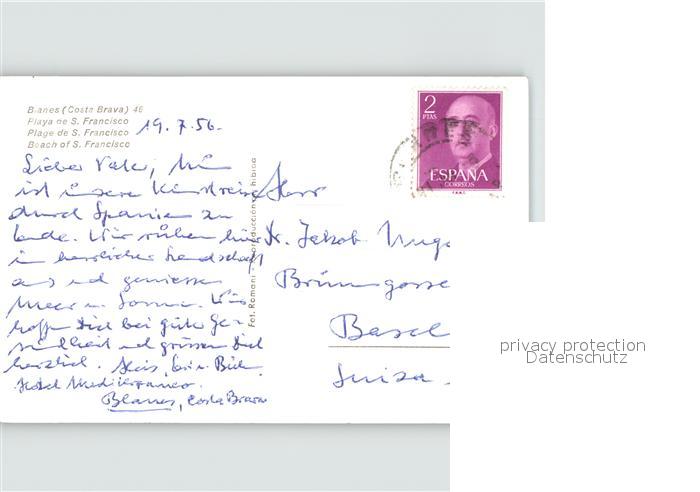 Blanes (Costa Brava) 46
Playa de S. Francisco
Plage de S. Francisco
Beach of S. Francisco
19.7.56.
2
PTAS
ESPAÑA
CORREOS
Lieber Vater, Nun
ist unsere Kunstreise
durch Spanien zu
Ende. Wir ruhen hier
in herrlicher Landschaft
aus und geniessen
Meer u. Sonne. Wir
hoffen Dich bei guter Ge-
sundheit und grüssen Dich
herzlich.
Hotel Mediterraneo
Blanes, Costa Brava
Fot. Romani - Reproducción prohibida
Herr
Dr. Jakob
Basel
Suiza
privacy protection
Datenschutz